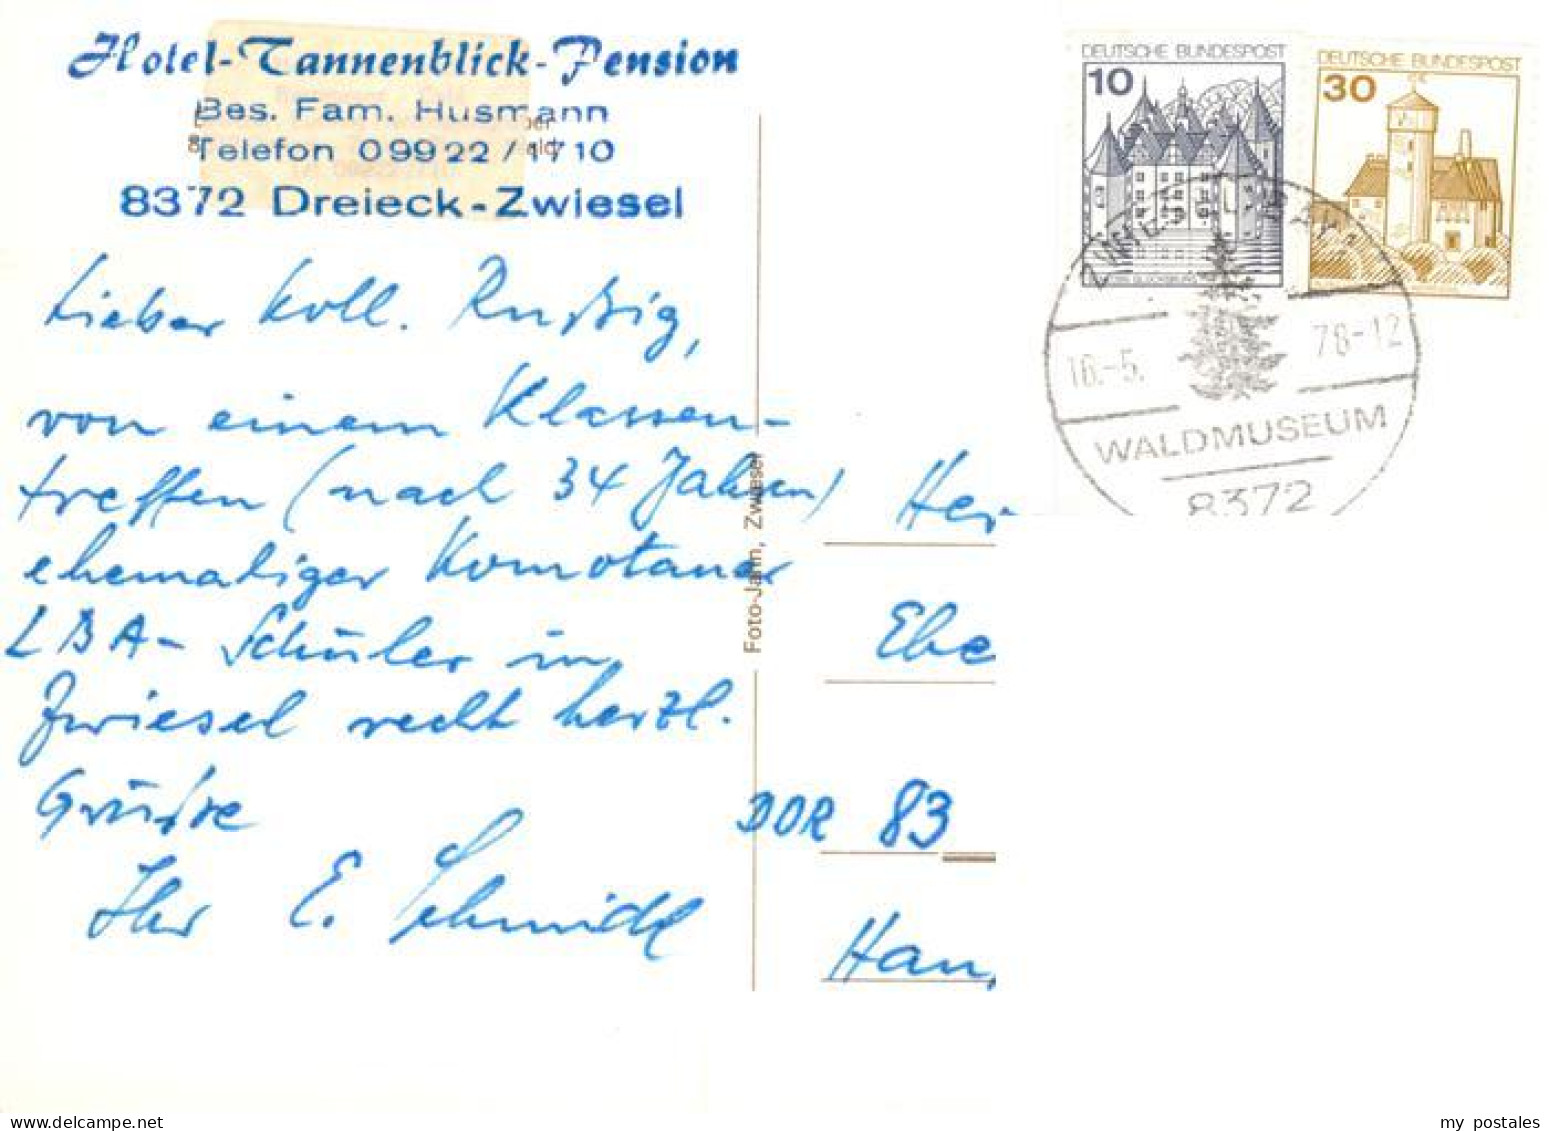 Hotel-Tannenblick-Pension
Bes. Fam. Husmann
Telefon 09922/1710
8372 Dreieck-Zwiesel
Lieber Koll. Rußig,
von einem Klassen-
treffen (nach 34 Jahren)
ehemaliger Komotauer
LBA-Schüler in
Zwiesel recht herzl.
Grüße
Ihr E. Schmidl
Foto-Jahn, Zwiesel
DEUTSCHE BUNDESPOST
10
GLÜCKSBURG
DEUTSCHE BUNDESPOST
30
ZWIESEL
18.-5. 78-12
WALDMUSEUM
8372
Her
Ebe
DDR 83
Han
my postales